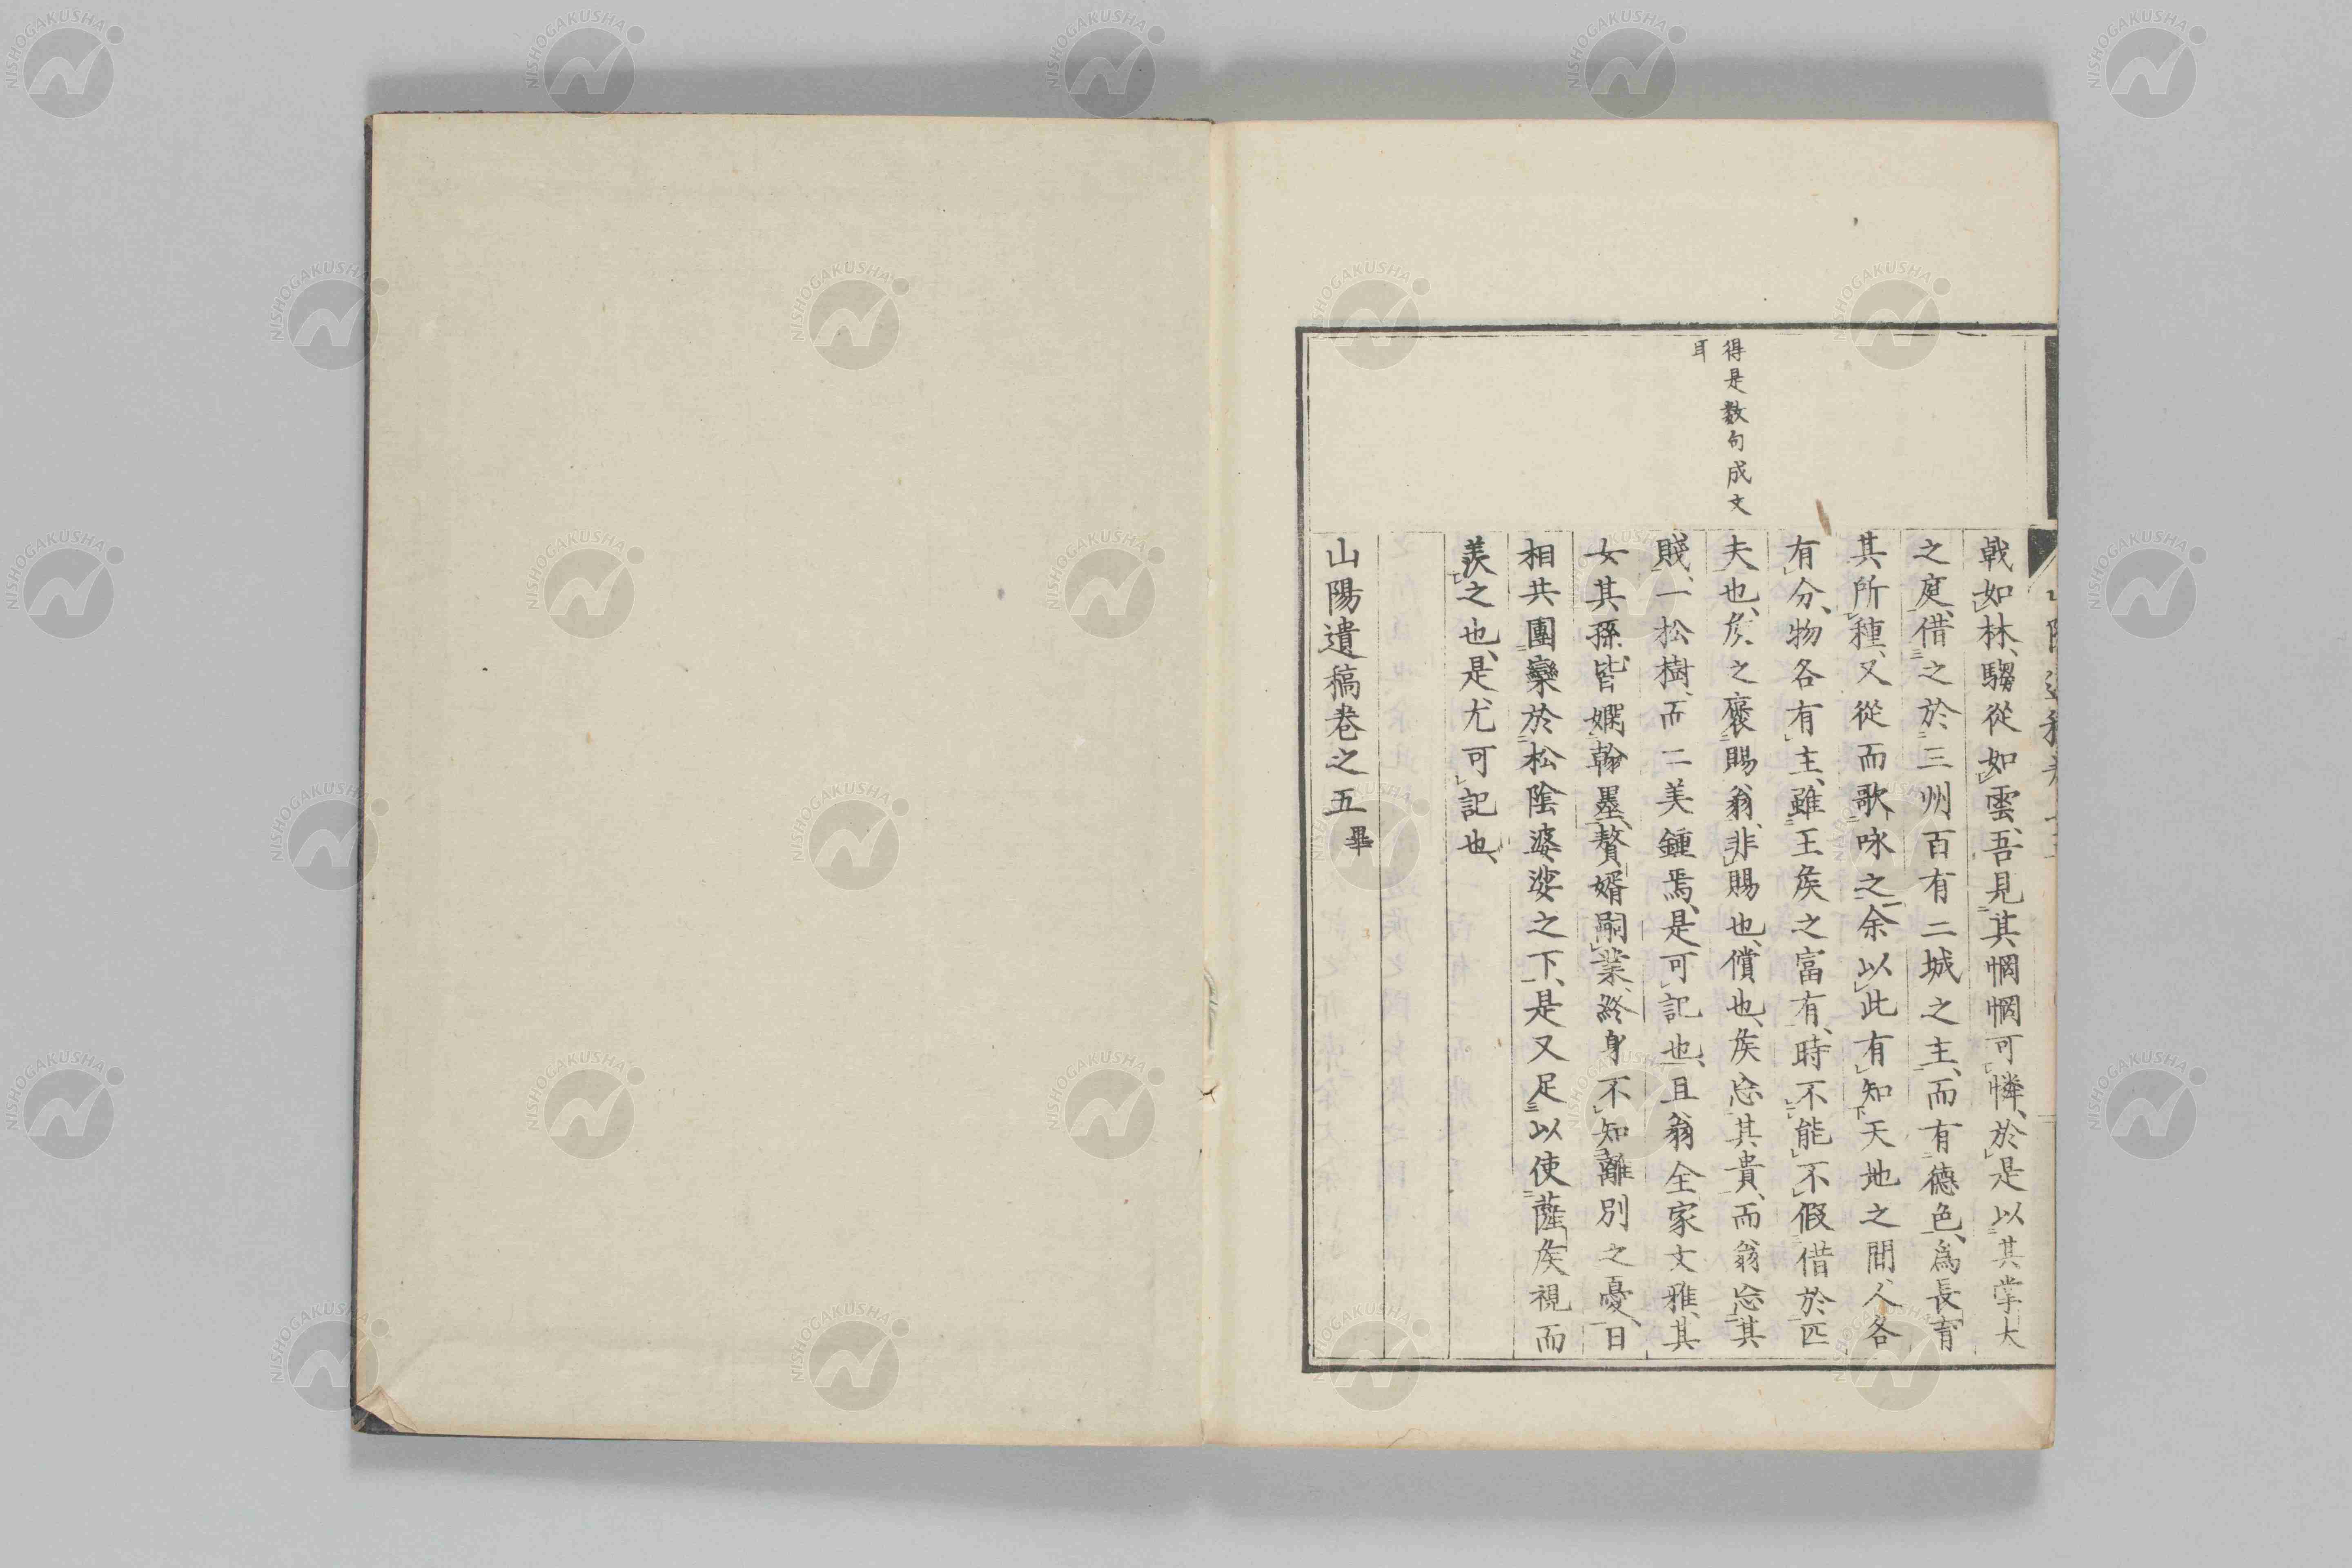 得是数句成文
耳
戟如林、騶從如雲、吾見其惘惘可憐、於是以其掌大
之庭、借之於三州百有二城之主、而有德色、爲長育
其所種、又從而歌咏之、余以此有知天地之間、人各
有分、物各有主、雖王矦之富有、時不能不假借於匹
夫也、矦之褒賜翁、非賜也、償也、矦忘其貴、而翁忘其
賤、一松樹、而二美鍾焉、是可記也、且翁全家文雅、其
女其孫、皆嫻翰墨、贅婿嗣業、終身不知離別之憂、日
相共團欒於松陰婆娑之下、是又足以使薩矦視而
羨之也、是尤可記也、
山陽遺稿卷之五 畢
NISHOGAKUSHA